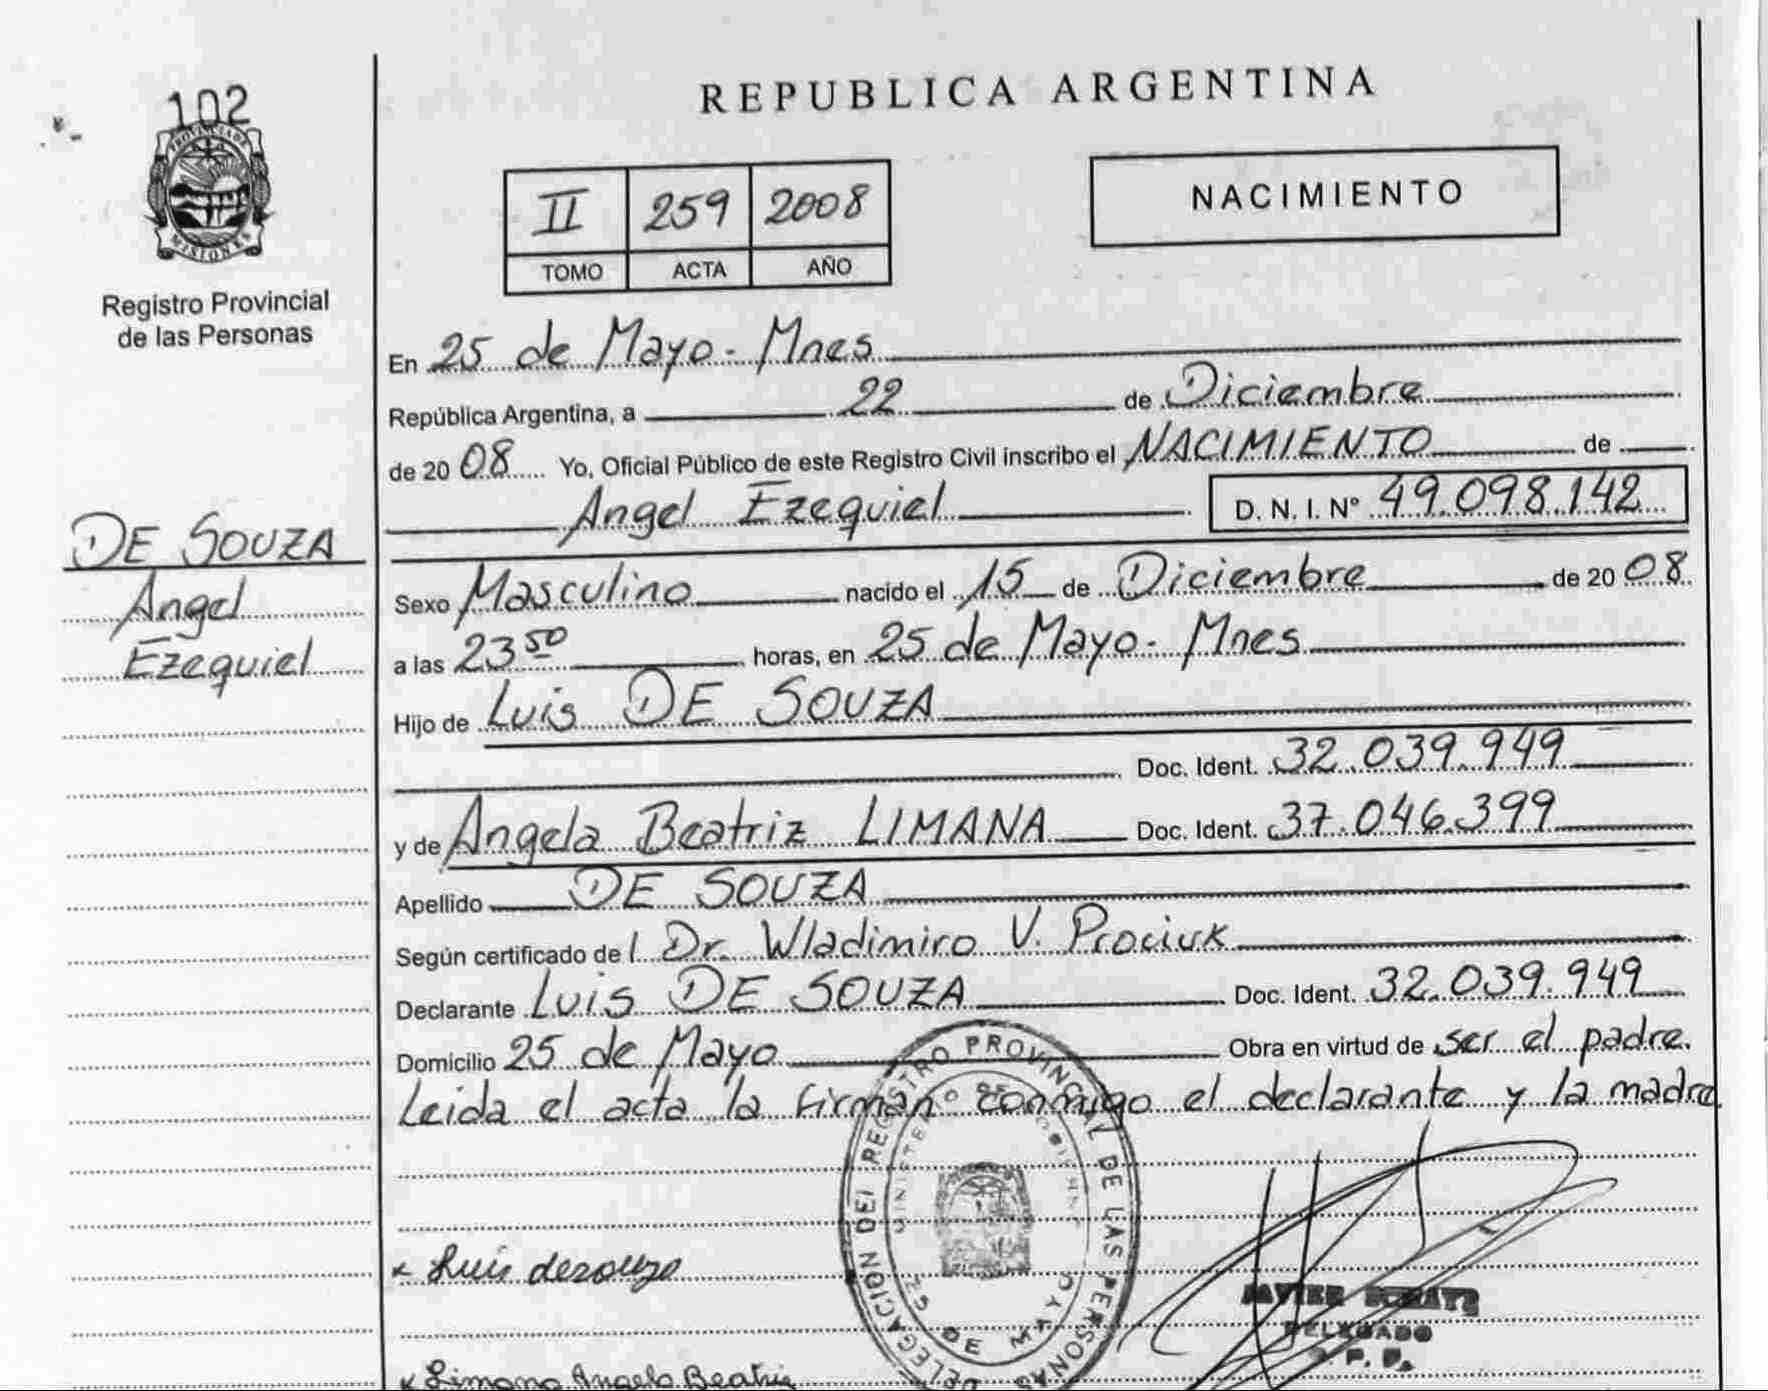 REPUBLICA ARGENTINA
102
PROVINCIA DE
MISIONES
Registro Provincial
de las Personas
II 259 2008
TOMO ACTA AÑO
NACIMIENTO
En 25 de Mayo - Mnes
República Argentina, a 22 de Diciembre
de 20 08 Yo, Oficial Público de este Registro Civil inscribo el NACIMIENTO de
Angel Ezequiel D. N. I. Nº 49.098.142
DE SOUZA
Angel
Ezequiel
Sexo Masculino nacido el 15 de Diciembre de 20 08
a las 23 50 horas, en 25 de Mayo - Mnes
Hijo de Luis DE SOUZA
Doc. Ident. 32.039.949
y de Angela Beatriz LIMANA Doc. Ident. 37.046.399
Apellido DE SOUZA
Según certificado de l Dr. Wladimiro V. Prociuk
Declarante Luis DE SOUZA Doc. Ident. 32.039.949
Domicilio 25 de Mayo Obra en virtud de ser el padre.
Leida el acta la firman conmigo el declarante y la madre.
DELEGACION DEL REGISTRO PROVINCIAL DE LAS PERSONAS
MINISTERIO DE GOBIERNO
25 DE MAYO
Luis desouza
JAVIER
DELEGADO
R. P. P.
Limana Angela Beatriz